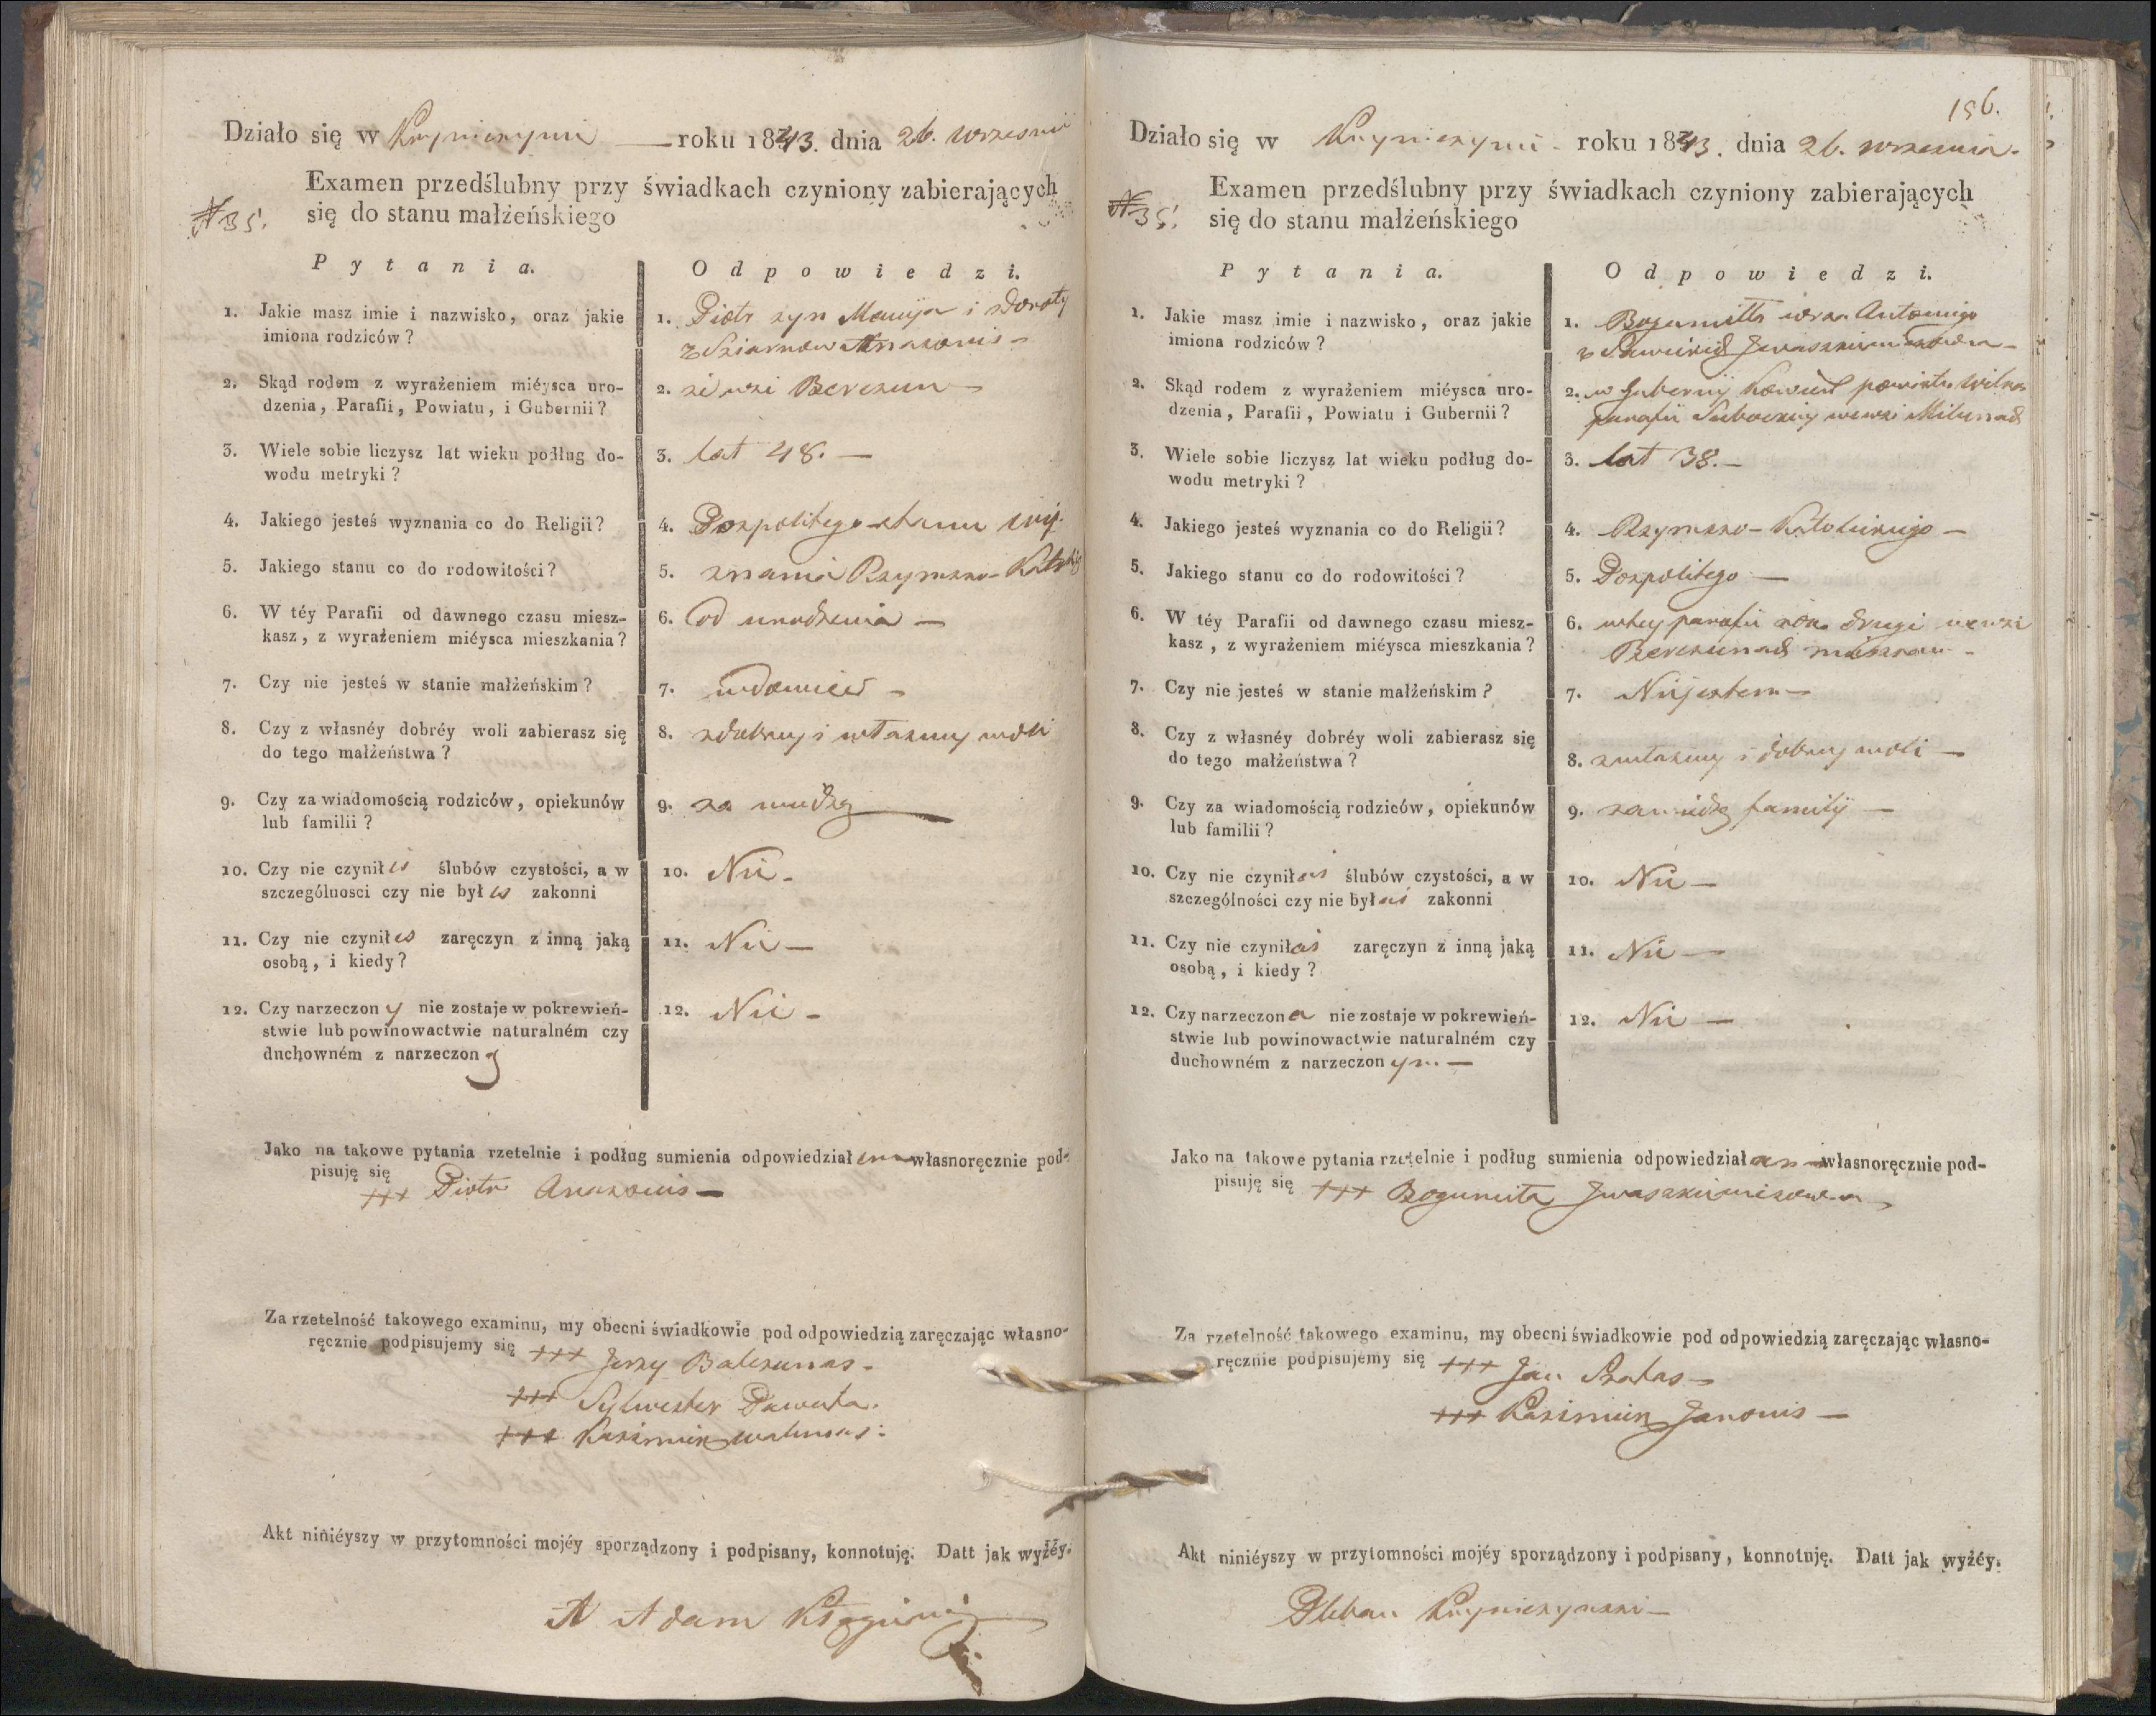 Działo się w Kryniczynie — roku 1843. dnia 26. wrzesnia
№ 35.
Examen przedślubny przy świadkach czyniony zabierających
się do stanu małżeńskiego
Pytania.
Odpowiedzi.
1. Jakie masz imie i nazwisko, oraz jakie
imiona rodziców?
1. Piotr syn i Doroty
2. Skąd rodem z wyrażeniem miéysca uro-
dzenia, Parafii, Powiatu, i Gubernii?
2. ze wsi
3. Wiele sobie liczysz lat wieku podług do-
wodu metryki?
3. lat 48. —
4. Jakiego jesteś wyznania co do Religii?
4. Pospolitego stanu wy-
5. Jakiego stanu co do rodowitości?
5. znania Rzymsko-
6. W téy Parafii od dawnego czasu miesz-
kasz, z wyrażeniem miéysca mieszkania?
6. od urodzenia —
7. Czy nie jesteś w stanie małżeńskim?
7. wdowiec —
8. Czy z własnéy dobréy woli zabierasz się
do tego małżeństwa?
8. z dobrey i własney woli
9. Czy za wiadomością rodziców, opiekunów
lub familii?
9. za wiedzą
10. Czy nie czynił es ślubów czystości, a w
szczególnosci czy nie był es zakonni
10. Nie —
11. Czy nie czynił es zaręczyn z inną jaką
osobą, i kiedy?
11. Nie —
12. Czy narzeczon y nie zostaje w pokrewień-
stwie lub powinowactwie naturalném czy
duchowném z narzeczon ą
12. Nie —
Jako na takowe pytania rzetelnie i podług sumienia odpowiedział em własnoręcznie pod-
pisuję się
+++ Piotr
Za rzetelność takowego examinu, my obecni świadkowie pod odpowiedzią zaręczając własno-
ręcznie podpisujemy się +++ Jerzy
+++ Sylwester
+++ Kazimierz
Akt niniéyszy w przytomności mojéy sporządzony i podpisany, konnotuję. Datt jak wyżéy.
Adam
156.
Działo się w Kryniczynie — roku 1843. dnia 26. wrzesnia —
№ 35.
Examen przedślubny przy świadkach czyniony zabierających
się do stanu małżeńskiego
Pytania.
Odpowiedzi.
1. Jakie masz imie i nazwisko, oraz jakie
imiona rodziców?
1. Bogumiłła Antoniego
2. Skąd rodem z wyrażeniem miéysca uro-
dzenia, Parafii, Powiatu i Gubernii?
2. w Gubernij powiatu
parafii we wsi
3. Wiele sobie liczysz lat wieku podług do-
wodu metryki?
3. lat 38. —
4. Jakiego jesteś wyznania co do Religii?
4. Rzymsko-Katolickiego —
5. Jakiego stanu co do rodowitości?
5. Pospolitego —
6. W téy Parafii od dawnego czasu miesz-
kasz, z wyrażeniem miéysca mieszkania?
6. w tey parafii rok drugi we wsi
mieszkam —
7. Czy nie jesteś w stanie małżeńskim?
7. Niejestem —
8. Czy z własnéy dobréy woli zabierasz się
do tego małżeństwa?
8. z własney i dobrey woli —
9. Czy za wiadomością rodziców, opiekunów
lub familii?
9. za wiedzą familij —
10. Czy nie czynił as ślubów czystości, a w
szczególności czy nie był as zakonni
10. Nie —
11. Czy nie czynił as zaręczyn z inną jaką
osobą, i kiedy?
11. Nie —
12. Czy narzeczon a nie zostaje w pokrewień-
stwie lub powinowactwie naturalném czy
duchowném z narzeczon ym. —
12. Nie —
Jako na takowe pytania rzetelnie i podług sumienia odpowiedział am własnoręcznie pod-
pisuję się +++ Bogumiła Iwaszkiewiczowna
Za rzetelność takowego examinu, my obecni świadkowie pod odpowiedzią zaręczając własno-
ręcznie podpisujemy się +++ Jan
+++ Kazimierz Janonis —
Akt niniéyszy w przytomności mojéy sporządzony i podpisany, konnotuję. Datt jak wyżéy.
Pleban Kryniczynski —